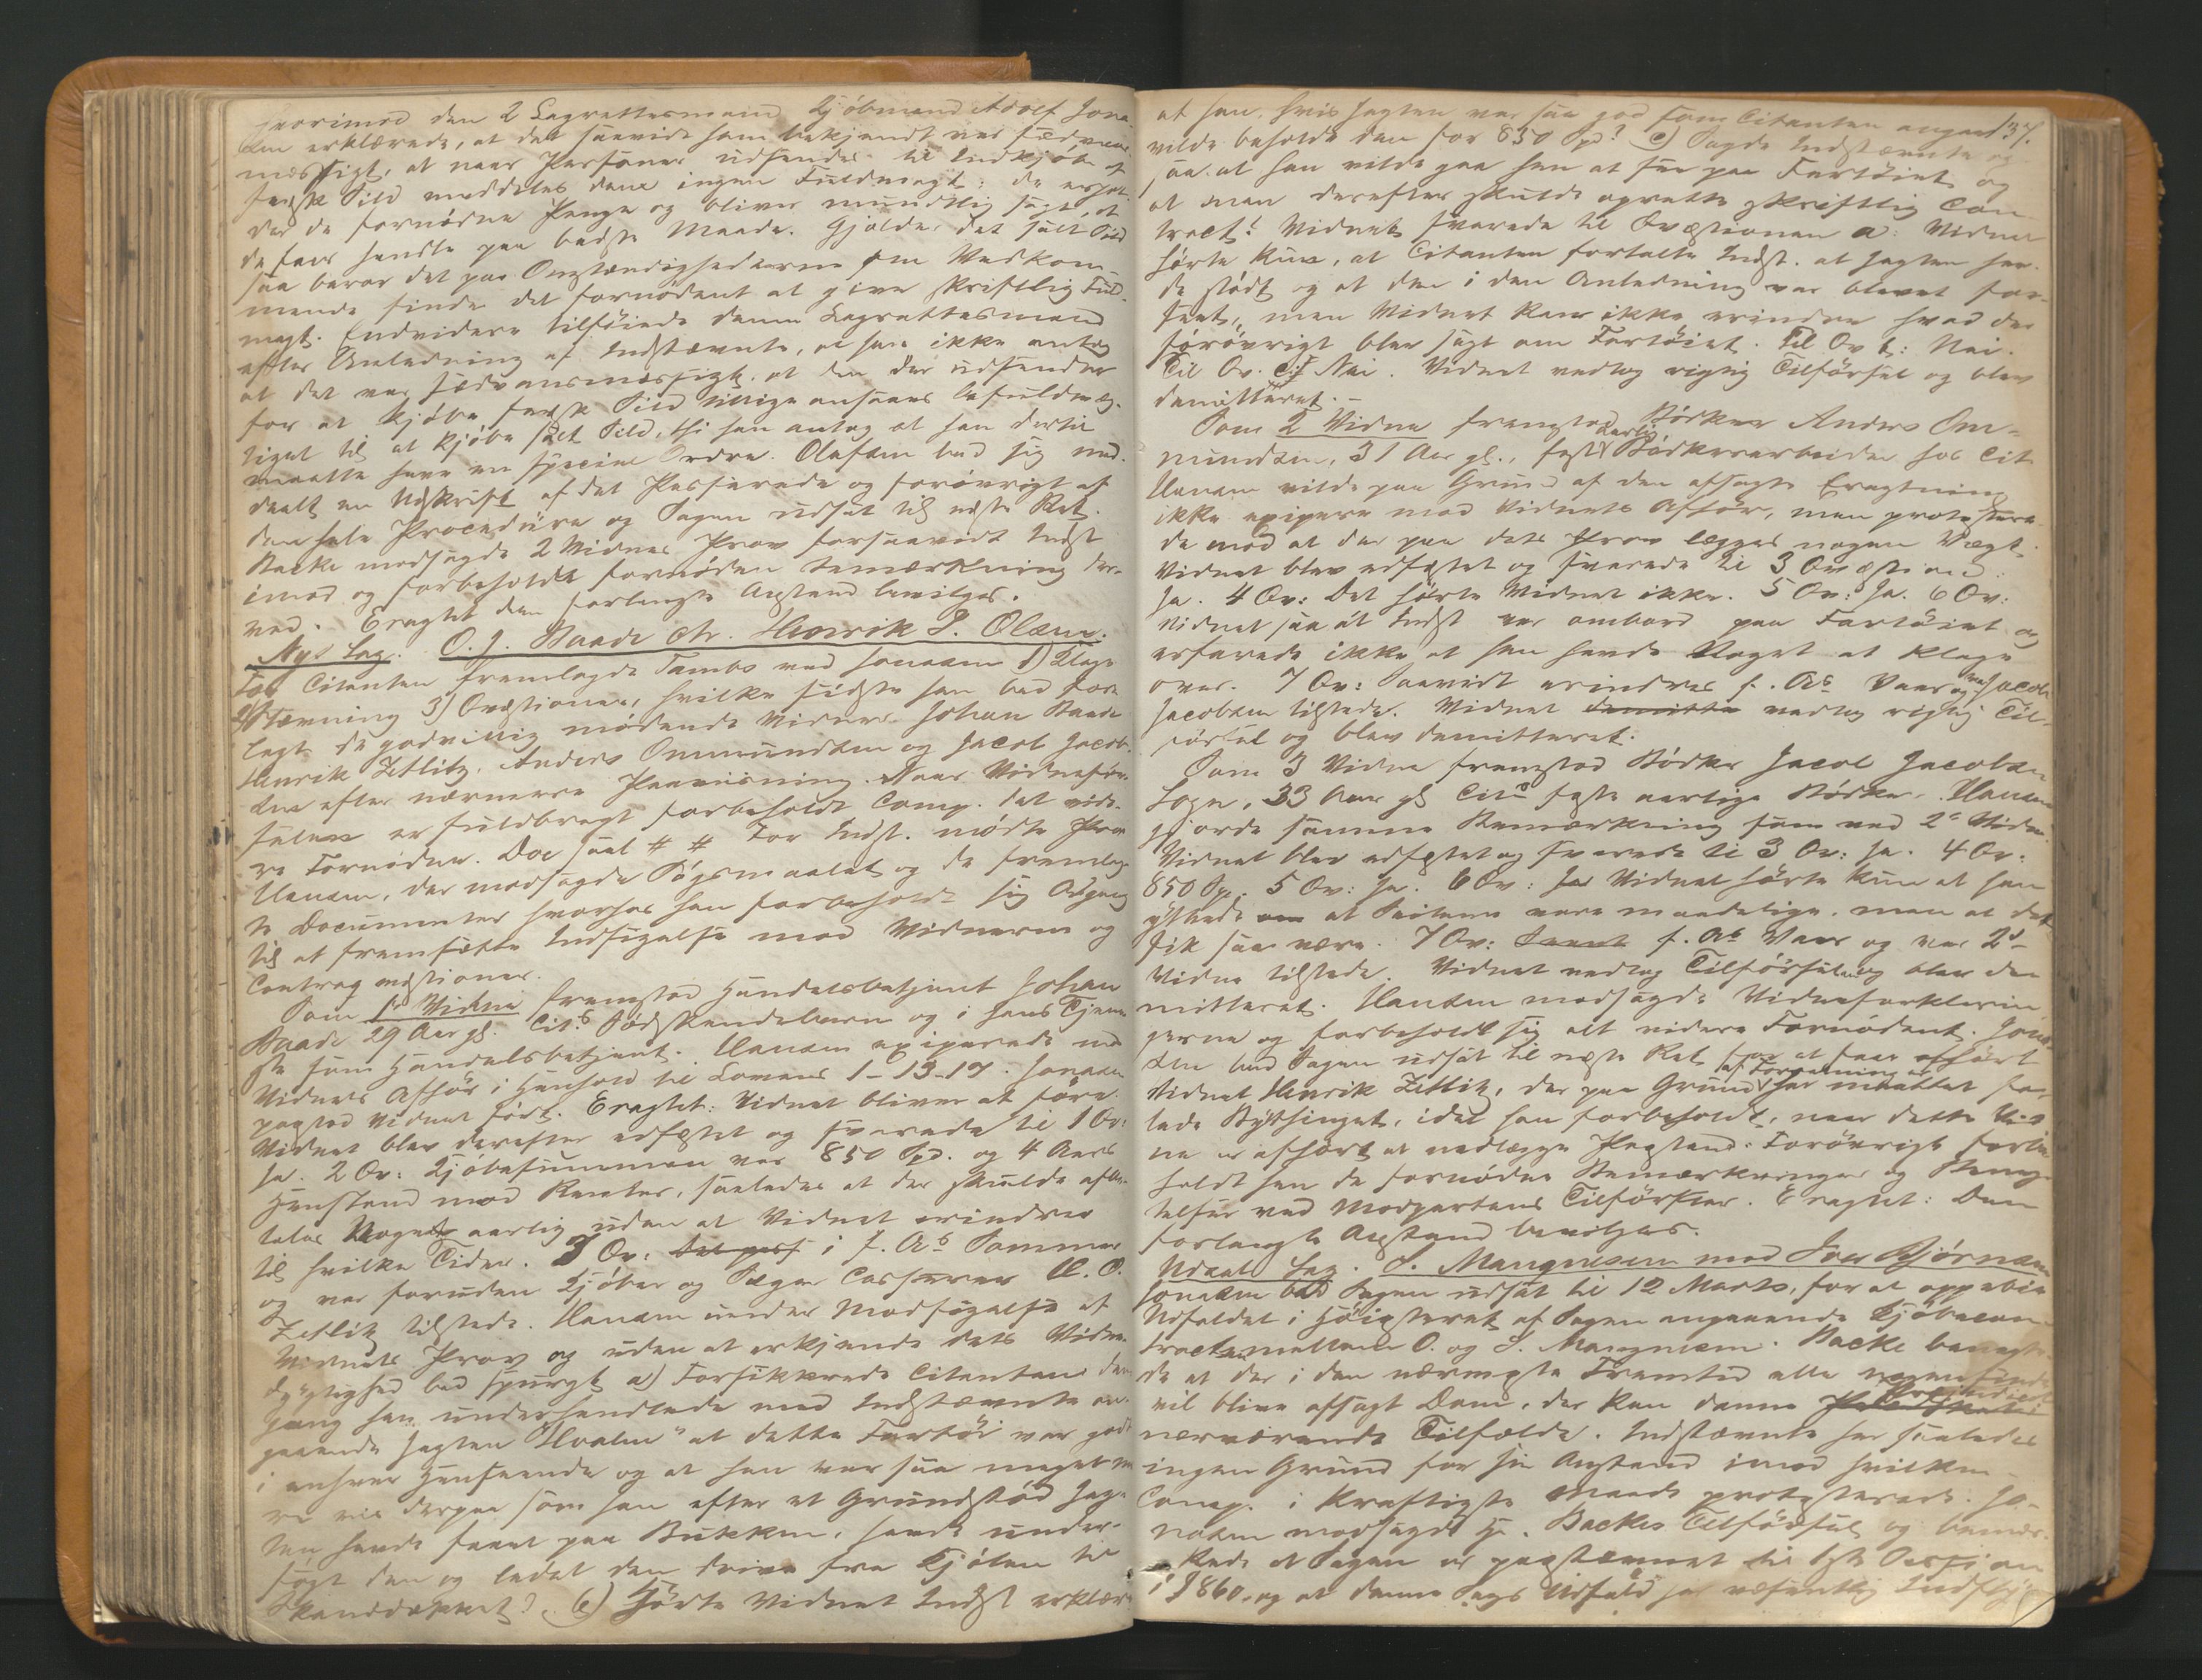 hvorimod den 2 Lagrettesmand Kjøbmand Adolf Jona-
sen erklærede, at det saavidt ham bekjendt var sædvans-
mæssigt, at naar Personer udsendes til Indkjøb af
fersk Sild meddeles dem ingen Fuldmagt; de erhol-
der de fornødne Penge og bliver mundtlig sagt, at
de faar handle paa bedste Maade. Gjælder det salt Sild
saa beror det paa Omstændighederne om Vedkom-
mende finde det fornødent at give skriftlig Fuld-
magt. Endvidere tilføiede denne Lagrettesmand
efter Anledning af Indstævnte, at han ikke antog
at det var sædvansmæssigt, at den der udsendes
for at kjøbe fersk Sild tillige ansees befuldmæg-
tiget til at kjøbe salt Sild, thi han antog at han dertil
maatte have en speciel Ordre. Olafsen bad sig med-
deelt en Udskrift af det Passerede og forøvrigt af
den hele Procedure og Sagen udsat til næste Ret.
Backe modsagde 2 Vidnes Prov forsaavidt Indst
imod og forbeholdt fornøden Bemærkning der-
ved. Eragtet den forlangte Anstand bevilges.
Nye Sag. O. J. Baade ctr. Henrik P. Olsen.
For Citanten fremlagde Tambs ved Jonassen 1) Klage
2) Stævning 3) Qvæstioner, hvilke sidste han bad fore-
lagt de godvillig mødende Vidner Johan Baade
Henrik Zetlitz, Anders Ommundsen og Jacob Jacob-
sen efter nærmere Paaviisning. Naar Vidneför-
selen er fuldbragt forbeholdt Comp. det vide-
re Fornødne. Doc saal # # For Indst. mødte Pro
Hansen, der modsagde Søgsmaalet og de fremlag-
te Documenter hvorhos han forbeholdt sig Adgang
til at fremsætte Indsigelse mod Vidnerne og
Contraqvæstioner.
Som 1te Vidne fremstod Handelsbetjent Johan
Baade 29 Aar gl. Cits Sødskendebarn og i hans Tjene-
ste som Handelsbetjent. Hansen exiperede mod
Vidnets Afhør i Henhold til Lovens 1-13-17. Jonassen
paastod Vidnet ført. Eragtet: Vidnet bliver at føre.
Vidnet blev derefter edfæstet og svarede til 1 Qv:
Ja. 2 Qv: Kjøbesummen var 850 Spd. og 4 Aars
Henstand mod Renter, saaledes at der skulde afbe-
tales Noget aarlig uden at Vidnet erindrer
til hvilke Tider. 3 Qv: i f. As Sommer
og var foruden Kjøber og Sælger Casserer A. O.
Zetlitz tilstede. Hansen under Modsigelse af
Vidnets Prov og uden at erkjende dets Vidne-
dygtighed bad spurgt a) Forsikkrede Citanten den
Gang han underhandlede med Indstævnte an-
gaaende Jagten "Svalen" at dette Fartøi var godt
i enhver Henseende og at han var saa meget me-
re vis derpaa som han efter et Grundstød Jag-
ten havde faaet paa Bukken, havde under-
søgt den og ladet den drive fra Kjølen til
Skanddækket? b) Hørte Vidnet Indst erklære
137.
at han, hvis Jagten var saa god som Citanten angav
vilde beholde den for 850 Spd? c) Sagde Indstævnte og-
saa at han vilde gaa hen at see paa Fartøiet og
at man derefter skulde oprette skriftlig Con-
tract? Vidnet svarede til Qvæstionen a: Vidnet
hørte kun, at Citanten fortalte Indst. at Jagten hav-
de stødt og at den i den Anledning var blevet for-
seet, men Vidnet kan ikke erindre hvad der
forøvrigt blev sagt om Fartøiet. Til Qv b: Nei.
Til Qv. c: Nei. Vidnet vedtog rigtig Tilførsel og blev
demitteret.-
Som 2 Vidne fremstod Bødker Anders Om-
mundsen, 31 Aar gl., fast aarlig Bødkerarbeider hos Cit.
Hansen vilde paa Grund af den afsagte Eragtning
ikke exipere mod Vidnets Afhør, men protestere-
de mod at der paa dets Prov lægges nogen Vægt.
Vidnet blev edfæstet og svarede til 3 Qvæstion:
Ja. 4 Qv: Det hørte Vidnet ikke. 5 Qv: Ja. 6 Qv:
Vidnet saa at Indst var ombord paa Fartøiet og
erfarede ikke at han havde Noget at klage
over. 7 Qv: Saavidt erindres f. As Vaar og var Jacob
Jacobsen tilstede. Vidnet vedtog rigtig Til-
førsel og blev demitteret.
Som 3 Vidne fremstod Bødker Jacob Jacobsen
33 Aar gl Cits faste aarlige Bødker. Hansen
gjorde samme Bemærkning som ved 2det Vidne.
Vidnet blev edfæstet og svarede til 3 Qv: Ja. 4 Qv:
850 Sp. 5 Qv: Ja. 6 Qv: Vidnet hørte kun at han
yttrede at Seilene vare maadelige, men at det
fik saa være. 7 Qv: f. As Vaar og var 2det
Vidne tilstede. Vidnet vedtog Tilførselen og blev de-
mitteret. Hansen modsagde Vidneforklarin-
gerne og forbeholdt sig alt videre Fornødent. Jonas-
sen bad Sagen udsat til næste Ret for at faae afhørt
Vidnet Henrik Zetlitz, der paa Grund af Forretning har maattet for-
lade Bythinget, idet han forbeholdt, naar dette Vid-
ne er afhørt at nedlægge Paastand. Forøvrigt forbe-
holdt han de fornødne Bemærkninger og Benæg-
telser ved Modpartens Tilførsler. Eragtet: Den
forlangte Anstand bevilges.
Udsat Sag. S. Mangnesen mod Iver Bjørnsen
Jonassen bad Sagen udsat til 12 Marts, for at oppebie
Udfaldet i Høiesteret af Sagen angaaende Kjøbecon-
tracten mellem O. og S. Mangnesen. Backe benægte-
de at der i den nærmeste Fremtid
vil blive afsagt Dom, der kan danne Præjudicat
nærværende Tilfælde. Indstævnte har saaledes
ingen Grund for sin Anstand imod hvilken
Comp. i kraftigste Maade protesterede. Jo-
nassen modsagde Hr. Backes Tilførsel og bemær-
kede at Sagen er paastævnet til 1ste Session
i 1860 og at denne Sags Udfald har væsentlig Indfly-